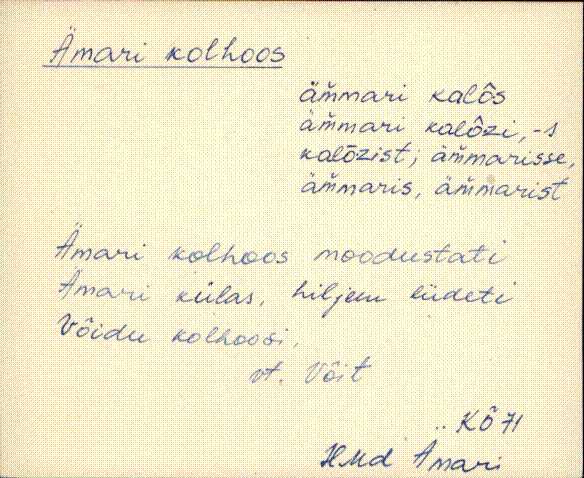 Ämari kolhoos
äm̆mari kalôs
äm̆mari kalôzi, -s
kalôzist; äm̆marisse,
äm̆maris, äm̆marist
Ämari kolhoos moodustati
Ämari külas, hiljem liideti
Võidu kolhoosi.
vt. Võit
KÕ 71
HMd Ämari